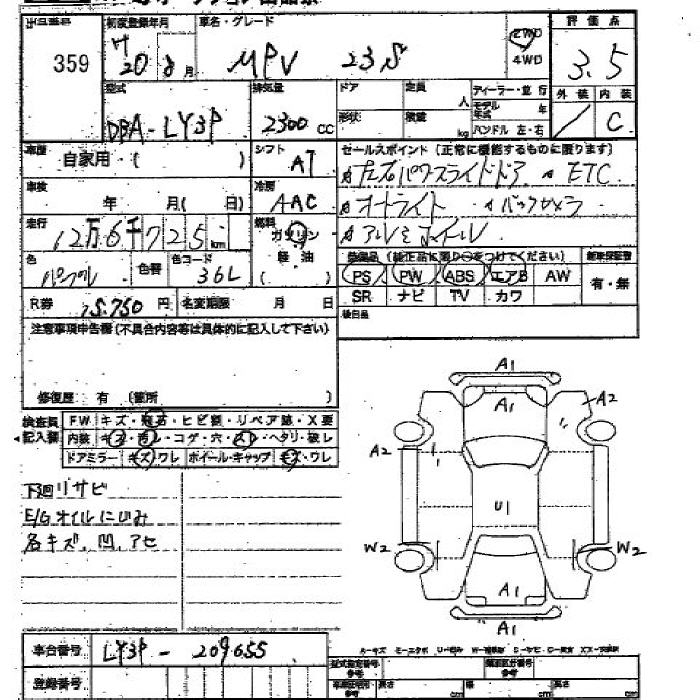 359
初度登録年月 車名・グレード
H20 8月 MPV 23S
2WD
4WD
評価点
3.5
型式 排気量 ドア 定員 人 ディーラー・並行
モデル年式 年
DBA-LY3P 2300 CC
形状 積載 kg ハンドル 左・右
外装 内装
C
車歴 自家用・( )
シフト AT
セールスポイント(正常に機能するものに限ります)
ETC
車検 年 月( 日)
冷房 AAC
オートライト バックカメラ
走行 12万6千725km
燃料 ガソリン
軽油
( )
アルミホイール
色 色替 色コード 36L
装備品(純正品に限り○をつけてください) 新車保証書
PS PW ABS エアB AW 有・無
SR ナビ TV カワ
R券 円 名変期限 月 日
後日品
注意事項申告欄(不具合内容等は具体的に記入して下さい)
修復歴:有 (箇所 )
検査員
記入欄
FW キズ・飛石・ヒビ割・リペア跡・X要
内装 キズ・汚レ・コゲ・穴・スレ・ヘタリ・破レ
ドアミラー キズ・ワレ ホイール・キャップ キズ・ワレ
下廻リサビ
E/Gオイルにじみ
各キズ、凹、アセ
A1
A1
A2
A2
U1
W2
W2
A1
A1
車台番号 LY3P-209655
登録番号
型式指定番号 類別区分番号
長さ cm 幅 cm 高さ cm